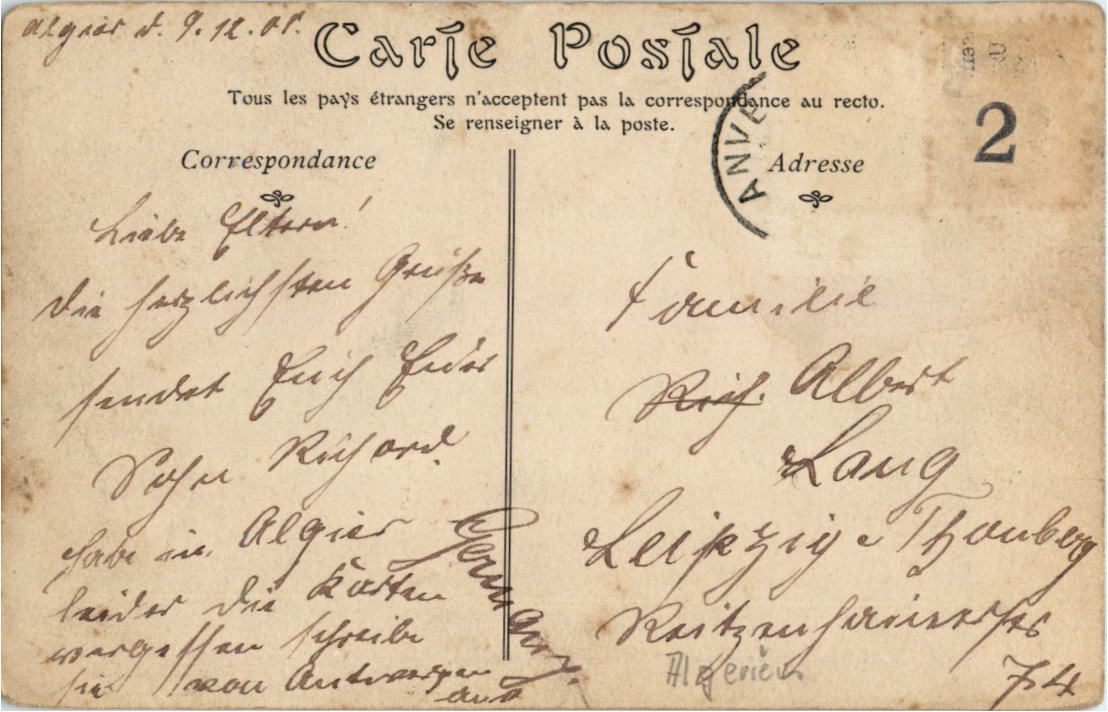 Algier d. 9.12.08.
Carte Postale
Tous les pays étrangers n'acceptent pas la correspondance au recto.
Se renseigner à la poste.
Correspondance
Liebe Eltern!
Die herzlichsten Grüße
sendet Euch Euer
Sohn Richard
habe in Algier
leider die Karten
vergessen schreibe
sie von Antwerpen
aus
Germany.
ANVE
2
Adresse
Familie
Rich. Albert
Lang
Leipzig Thonberg
Reitzenhainerstr
74
Algerien